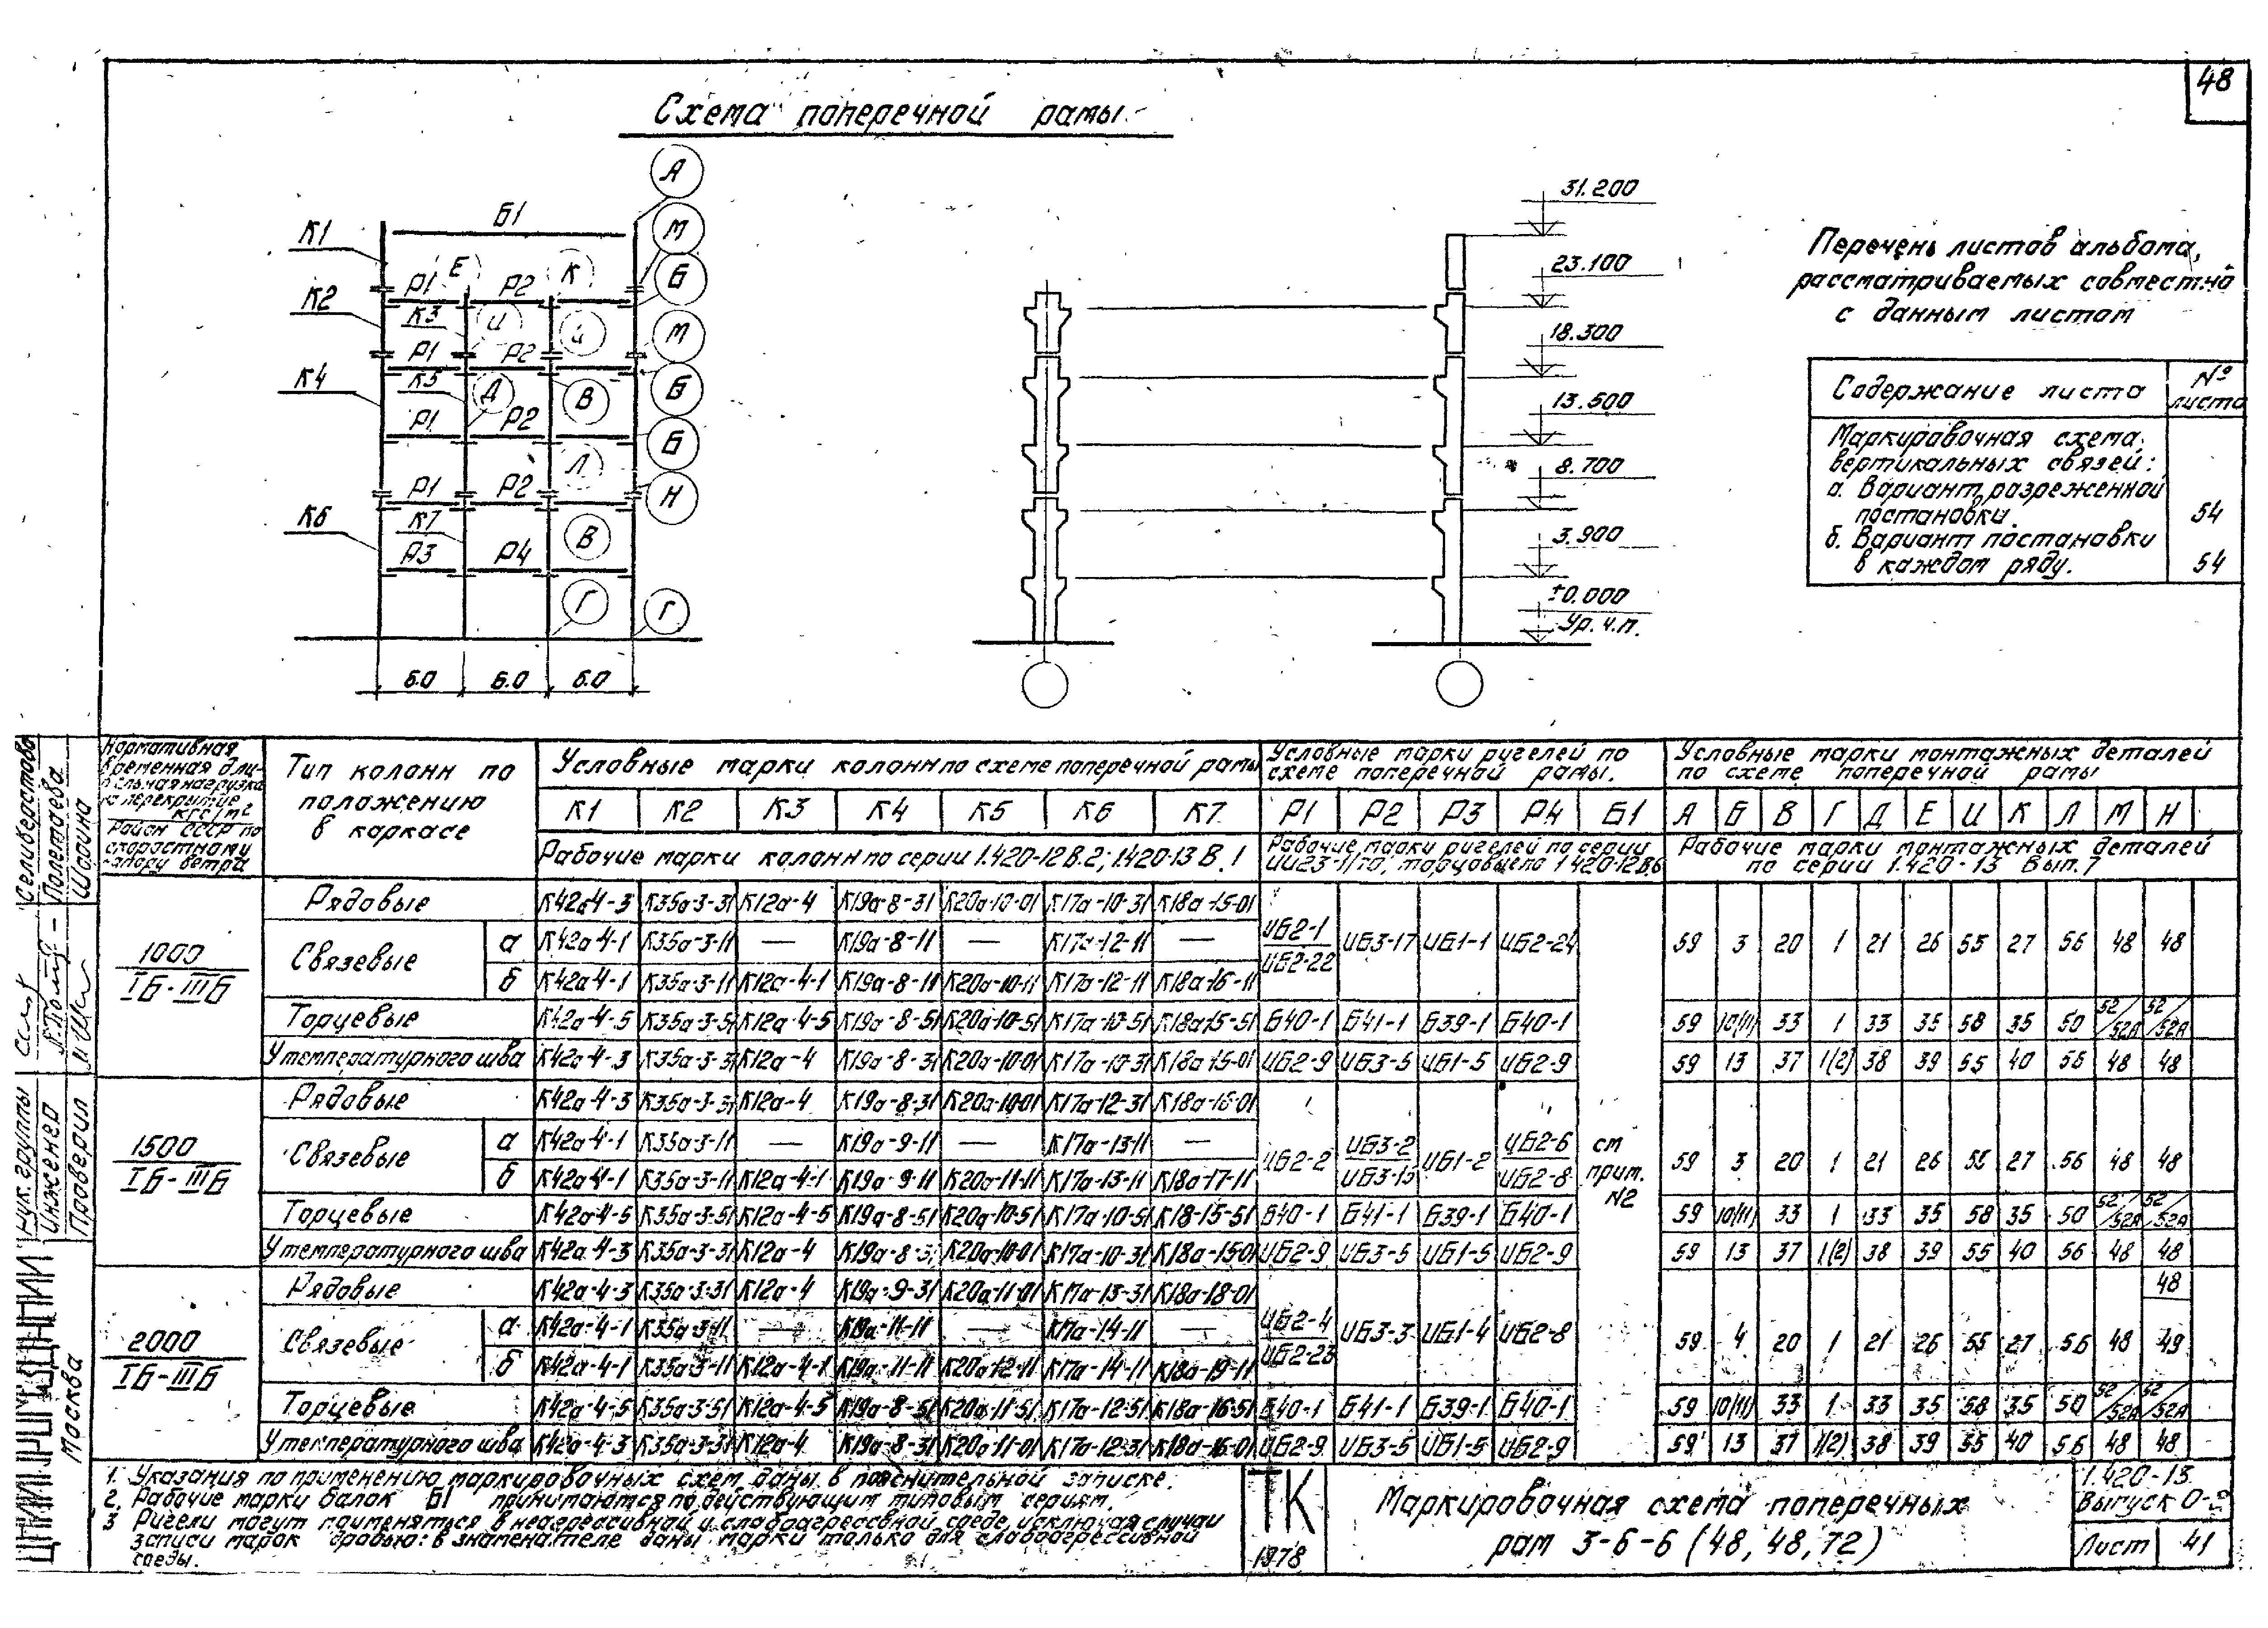 48
Схема поперечной рамы
А
М
Б
М
Б
Б
Н
К1
Б1
Е
К
К2
Р1
Р2
К3
И
И
Р1
Р2
К4
К5
Д
В
Р1
Р2
Л
Р1
Р2
К6
К7
В
Р3
Р4
Г
Г
6.0 6.0 6.0
31.200
23.100
18.300
13.500
8.700
3.900
±0.000
Ур. ч.п.
Перечень листов альбома,
рассматриваемых совместно
с данным листом
Содержание листа № листа
Маркировочная схема
вертикальных связей:
а. Вариант разреженной
постановки. 54
б. Вариант постановки
в каждом ряду. 54
Нормативная временная длительная нагрузка на перекрытие кгс/м2
Район СССР по скоростному напору ветра
Тип колонн по положению в каркасе
Условные марки колонн по схеме поперечной рамы
Условные марки ригелей по схеме поперечной рамы.
Условные марки монтажных деталей по схеме поперечной рамы
К1 К2 К3 К4 К5 К6 К7 Р1 Р2 Р3 Р4 Б1 А Б В Г Д Е И К Л М Н
Рабочие марки колонн по серии 1.420-12 В.2; 1.420-13 В.1
Рабочие марки ригелей по серии ИИ23-1/70; торцовые по 1.420-12 В.6
Рабочие марки монтажных деталей по серии 1.420-13 Вып.7
1000
IБ-IIIБ
Рядовые К42а-4-3 К35а-3-31 К12а-4 К19а-8-31 К20а-10-01 К17а-10-31 К18а-15-01
Связевые
а К42а-4-1 К35а-3-11 — К19а-8-11 — К17а-12-11 —
б К42а-4-1 К35а-3-11 К12а-4-1 К19а-8-11 К20а-10-11 К17а-12-11 К18а-16-11
ИБ2-1/ИБ2-22 ИБ3-17 ИБ1-1 ИБ2-24 59 3 20 1 21 26 55 27 56 48 48
Торцевые К42а-4-5 К35а-3-51 К12а-4-5 К19а-8-51 К20а-10-51 К17а-10-51 К18а-15-51 Б40-1 Б41-1 Б39-1 Б40-1 59 10(11) 33 1 33 35 58 35 50 52/52А 52/52А
У температурного шва К42а-4-3 К35а-3-31 К12а-4 К19а-8-31 К20а-10-01 К17а-10-31 К18а-15-01 ИБ2-9 ИБ3-5 ИБ1-5 ИБ2-9 59 13 37 1(2) 38 39 55 40 56 48 48
1500
IБ-IIIБ
Рядовые К42а-4-3 К35а-3-31 К12а-4 К19а-8-31 К20а-10-01 К17а-12-31 К18а-16-01
Связевые
а К42а-4-1 К35а-3-11 — К19а-9-11 — К17а-13-11 —
б К42а-4-1 К35а-3-11 К12а-4-1 К19а-9-11 К20а-11-11 К17а-13-11 К18а-17-11
ИБ2-2 ИБ3-2/ИБ3-13 ИБ1-2 ИБ2-6/ИБ2-8 59 3 20 1 21 26 55 27 56 48 48
см прим. №2
Торцевые К42а-4-5 К35а-3-51 К12а-4-5 К19а-8-51 К20а-10-51 К17а-10-51 К18-15-51 Б40-1 Б41-1 Б39-1 Б40-1 59 10(11) 33 1 33 35 58 35 50 52/52А 52/52А
У температурного шва К42а-4-3 К35а-3-31 К12а-4 К19а-8-31 К20а-10-01 К17а-10-31 К18а-15-01 ИБ2-9 ИБ3-5 ИБ1-5 ИБ2-9 59 13 37 1(2) 38 39 55 40 56 48 48
2000
IБ-IIIБ
Рядовые К42а-4-3 К35а-3-31 К12а-4 К19а-9-31 К20а-11-01 К17а-13-31 К18а-18-01
Связевые
а К42а-4-1 К35а-3-11 — К19а-11-11 — К17а-14-11 —
б К42а-4-1 К35а-3-11 К12а-4-1 К19а-11-11 К20а-12-11 К17а-14-11 К18а-19-11
ИБ2-4/ИБ2-23 ИБ3-3 ИБ1-4 ИБ2-8 59 4 20 1 21 26 55 27 56 48 48/49
Торцевые К42а-4-5 К35а-3-51 К12а-4-5 К19а-8-51 К20а-11-51 К17а-12-51 К18а-16-51 Б40-1 Б41-1 Б39-1 Б40-1 59 10(11) 33 1 33 35 58 35 50 52/52А 52/52А
У температурного шва К42а-4-3 К35а-3-31 К12а-4 К19а-8-31 К20а-11-01 К17а-12-31 К18а-16-01 ИБ2-9 ИБ3-5 ИБ1-5 ИБ2-9 59 13 37 1(2) 38 39 55 40 56 48 48
1. Указания по применению маркировочных схем даны в пояснительной записке.
2. Рабочие марки балок Б1 принимаются по действующим типовым сериям.
3 Ригели могут применяться в неагрессивной и слабоагрессивной среде, исключая случаи
записи марок дробью: в знаменателе даны марки только для слабоагрессивной
среды.
ТК
1978
Маркировочная схема поперечных
рам 3-6-6 (48, 48, 72)
1.420-13
Выпуск 0-
Лист 41
ЦНИИПРОМЗДАНИЙ
Москва
Рук. группы Селиверстова
Инженер Полетаева
Проверил Шорина